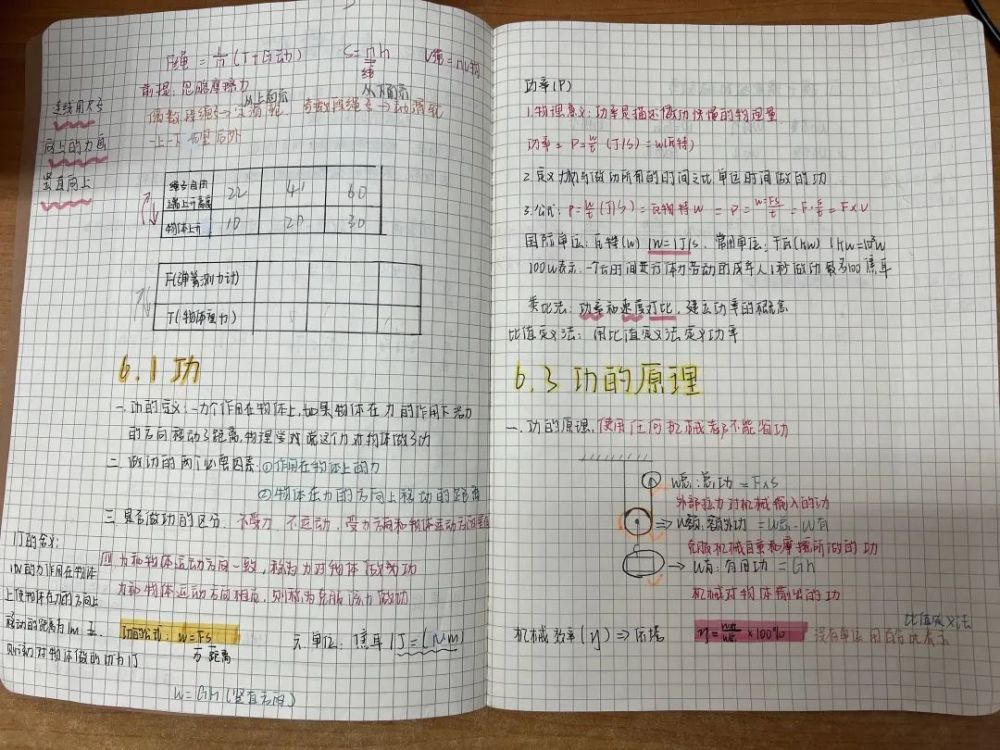 F绳 = 1/n (T+G动) S=nh V绳=nV物
绳
前提:忽略摩擦力
从上向示 从下向示
偶数段绳子→定滑轮 奇数段绳子→动滑轮
一上一下
连续用大写
向上的力画
竖直向上
绳子自由端上升高度 22 41 60
物体上升 10 20 30
F(弹簧测力计)
T(物体重力)
6.1 功
一.功的定义:一个力作用在物体上,如果物体在力的作用下沿力
的方向移动了距离,物理学对 就这个力对物体做了功
二 做功的两个必要因素:①作用在物体上的力
②物体在力的方向上移动的距离
三 是否做功的区分.不受力 不运动,受力方向和物体运动方向垂直
四 力和物体运动方向一致,称为力对物体做功
力和物体运动方向相反,则称为克服该力做功
1J的含义:
1N的力作用在物体
上使物体在力的方向上
移动的距离为1m
则该力对物体做的功为1J
五. 功的公式:W=FS 六.单位:焦耳 1J=1(N·m)
力 距离
W=Gh(竖直方向)
功率(P)
1.物理意义:功率是描述做功快慢的物理量
功率= P=W/t (J/S) = W(瓦特)
2.定义:功与做功所用的时间之比 单位时间做的功
3.公式:P=W/t (J/S)=瓦特 W = P=W=FS/t =F·S/t =F×V
国际单位:瓦特(W) 1W=1J/s.常用单位:千瓦(kW) 1kW=10³W
100W表示.一个长时间从事体力劳动的成年人1秒做功最多100焦耳
类比法:功率和速度对比,建立功率的概念
比值定义法:用比值定义法定义功率
6.3 功的原理
一.功的原理.使用任何机械都不能省功
W总:总功=F×S
外部拉力对机械输入的功
⇒W额:额外功=W总-W有
克服机械自重和摩擦所做的功
→W有:有用功=Gh
机械对物体输出的功
比值定义法
机械效率(η) ⇒ η=W有/W总×100% 没有单位用百分比表示